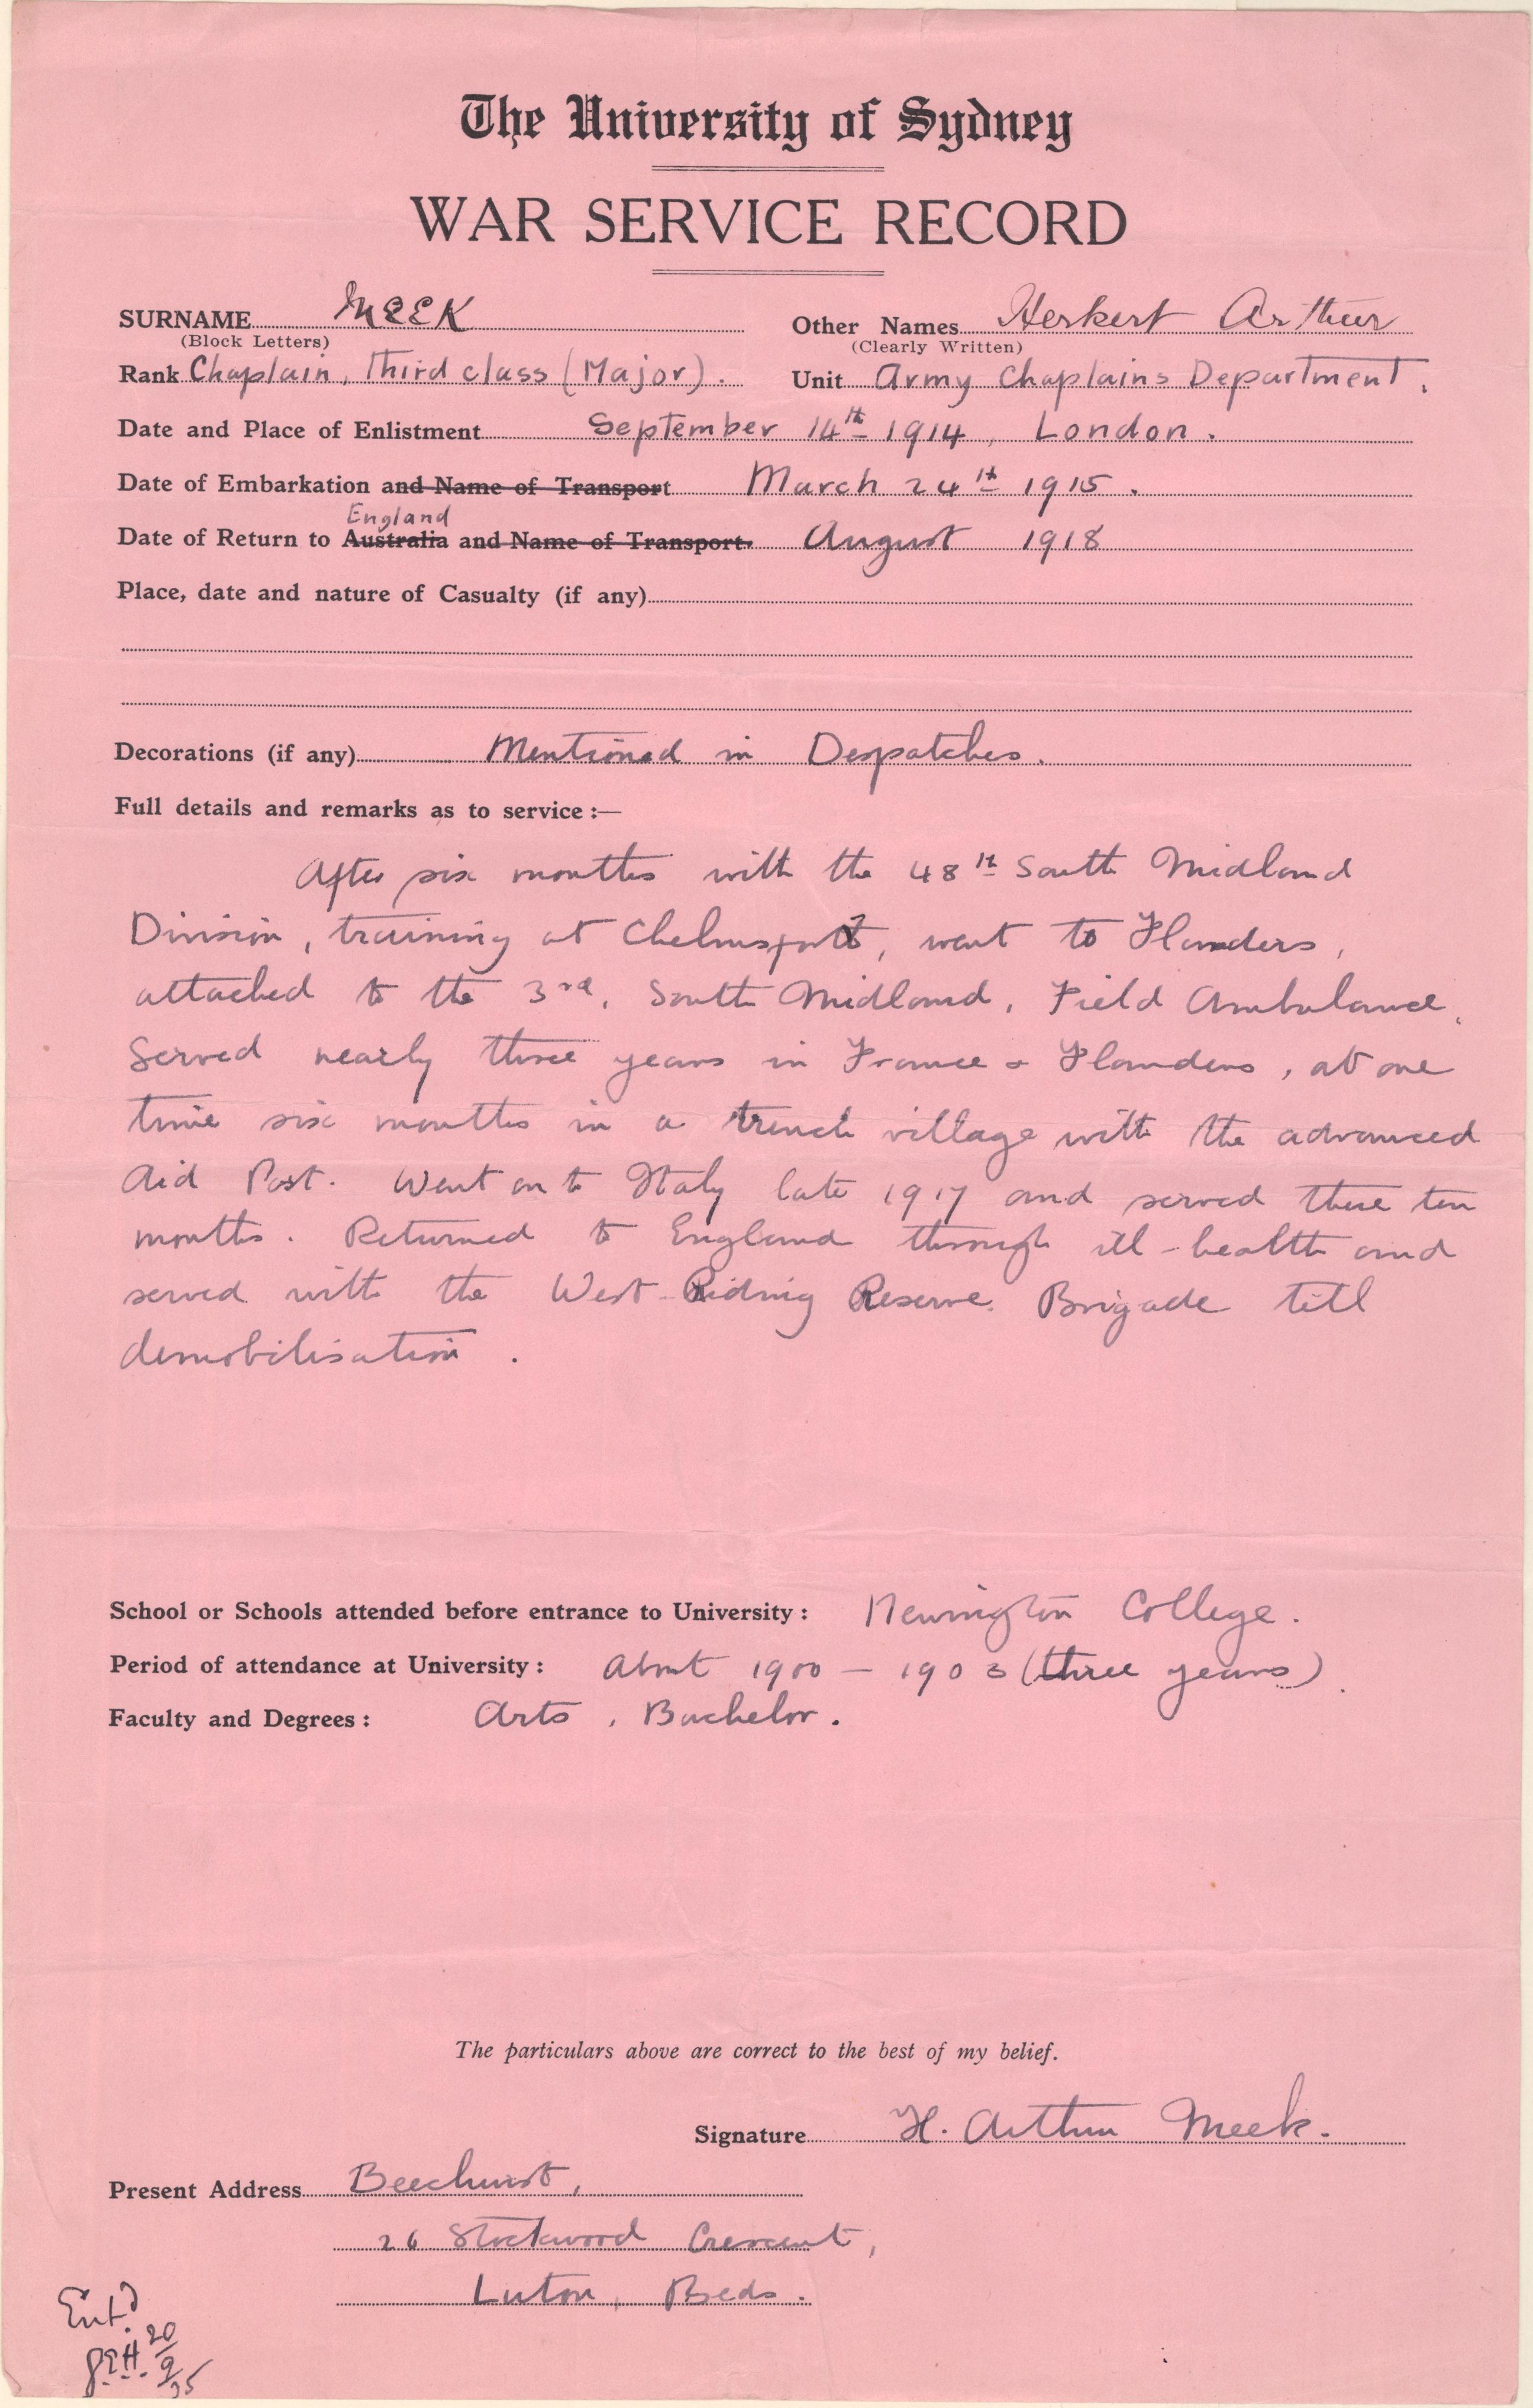 The University of Sydney
WAR SERVICE RECORD
SURNAME MEEK Other Names Herbert Arthur
(Block Letters) (Clearly Written)
Rank Chaplain, Third class (Major). Unit Army Chaplains Department.
Date and Place of Enlistment September 14th 1914, London.
Date of Embarkation and Name of Transport March 24th 1915.
England
Date of Return to Australia and Name of Transport. August 1918
Place, date and nature of Casualty (if any)
Decorations (if any) Mentioned in Despatches.
Full details and remarks as to service:—
After six months with the 48th South Midland
Division, training at, went to Flanders,
attached to the 3rd. South Midland, Field Ambulance.
Served nearly three years in France & Flanders, at one
time six months in a trench village with the advanced
Aid Post. Went on to Italy late 1917 and served there ten
months. Returned to England through ill-health and
served with the West-Riding Reserve Brigade till
demobilisation.
School or Schools attended before entrance to University: Newington College.
Period of attendance at University: About 1900 – 1903 (three years).
Faculty and Degrees: Arts, Bachelor.
The particulars above are correct to the best of my belief.
Signature H. Arthur Meek.
Present Address Beechurst,
26 Stockwood Crescent,
Luton, Beds.
Ent.d
20
9
35